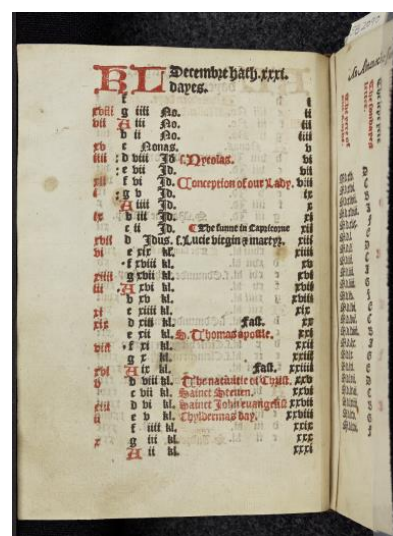 KL Decembre hath .xxxi.
dayes.
f i
xviii g iiii No. ii
vii A iii No. iii
b ii No. iiii
xv c Nonas. v
iiii d viii Jd s. Nycolas. vi
e vii Jd. vii
xii f vi Jd. Conception of our Lady. viii
i g v Jd. ix
A iiii Jd. x
ix b iii Jd. xi
c ii Jd. The sunne in Capricorne xii
xvii d Jdus. s. Lucie virgin & martyr. xiii
vi e xix kl. xiiii
f xviii kl. xv
xiiii g xvii kl. xvi
iii A xvi kl.
b xv kl. xviii
xi c xiiii kl. xix
xix d xiii kl. Fast. xx
e xii kl. S. Thomas apostle. xxi
viii f xi kl. xxii
g x kl. xxiii
xvi A ix kl. Fast. xxiiii
v b viii kl. The nativitie of Christ. xxv
c vii kl. Sainct Steuen. xxvi
xiii d vi kl. Sainct John euangelist xxvii
ii e v kl. Chyldermas day. xxviii
f iiii kl. xxix
x g iii kl. xxx
A ii kl. xxxi